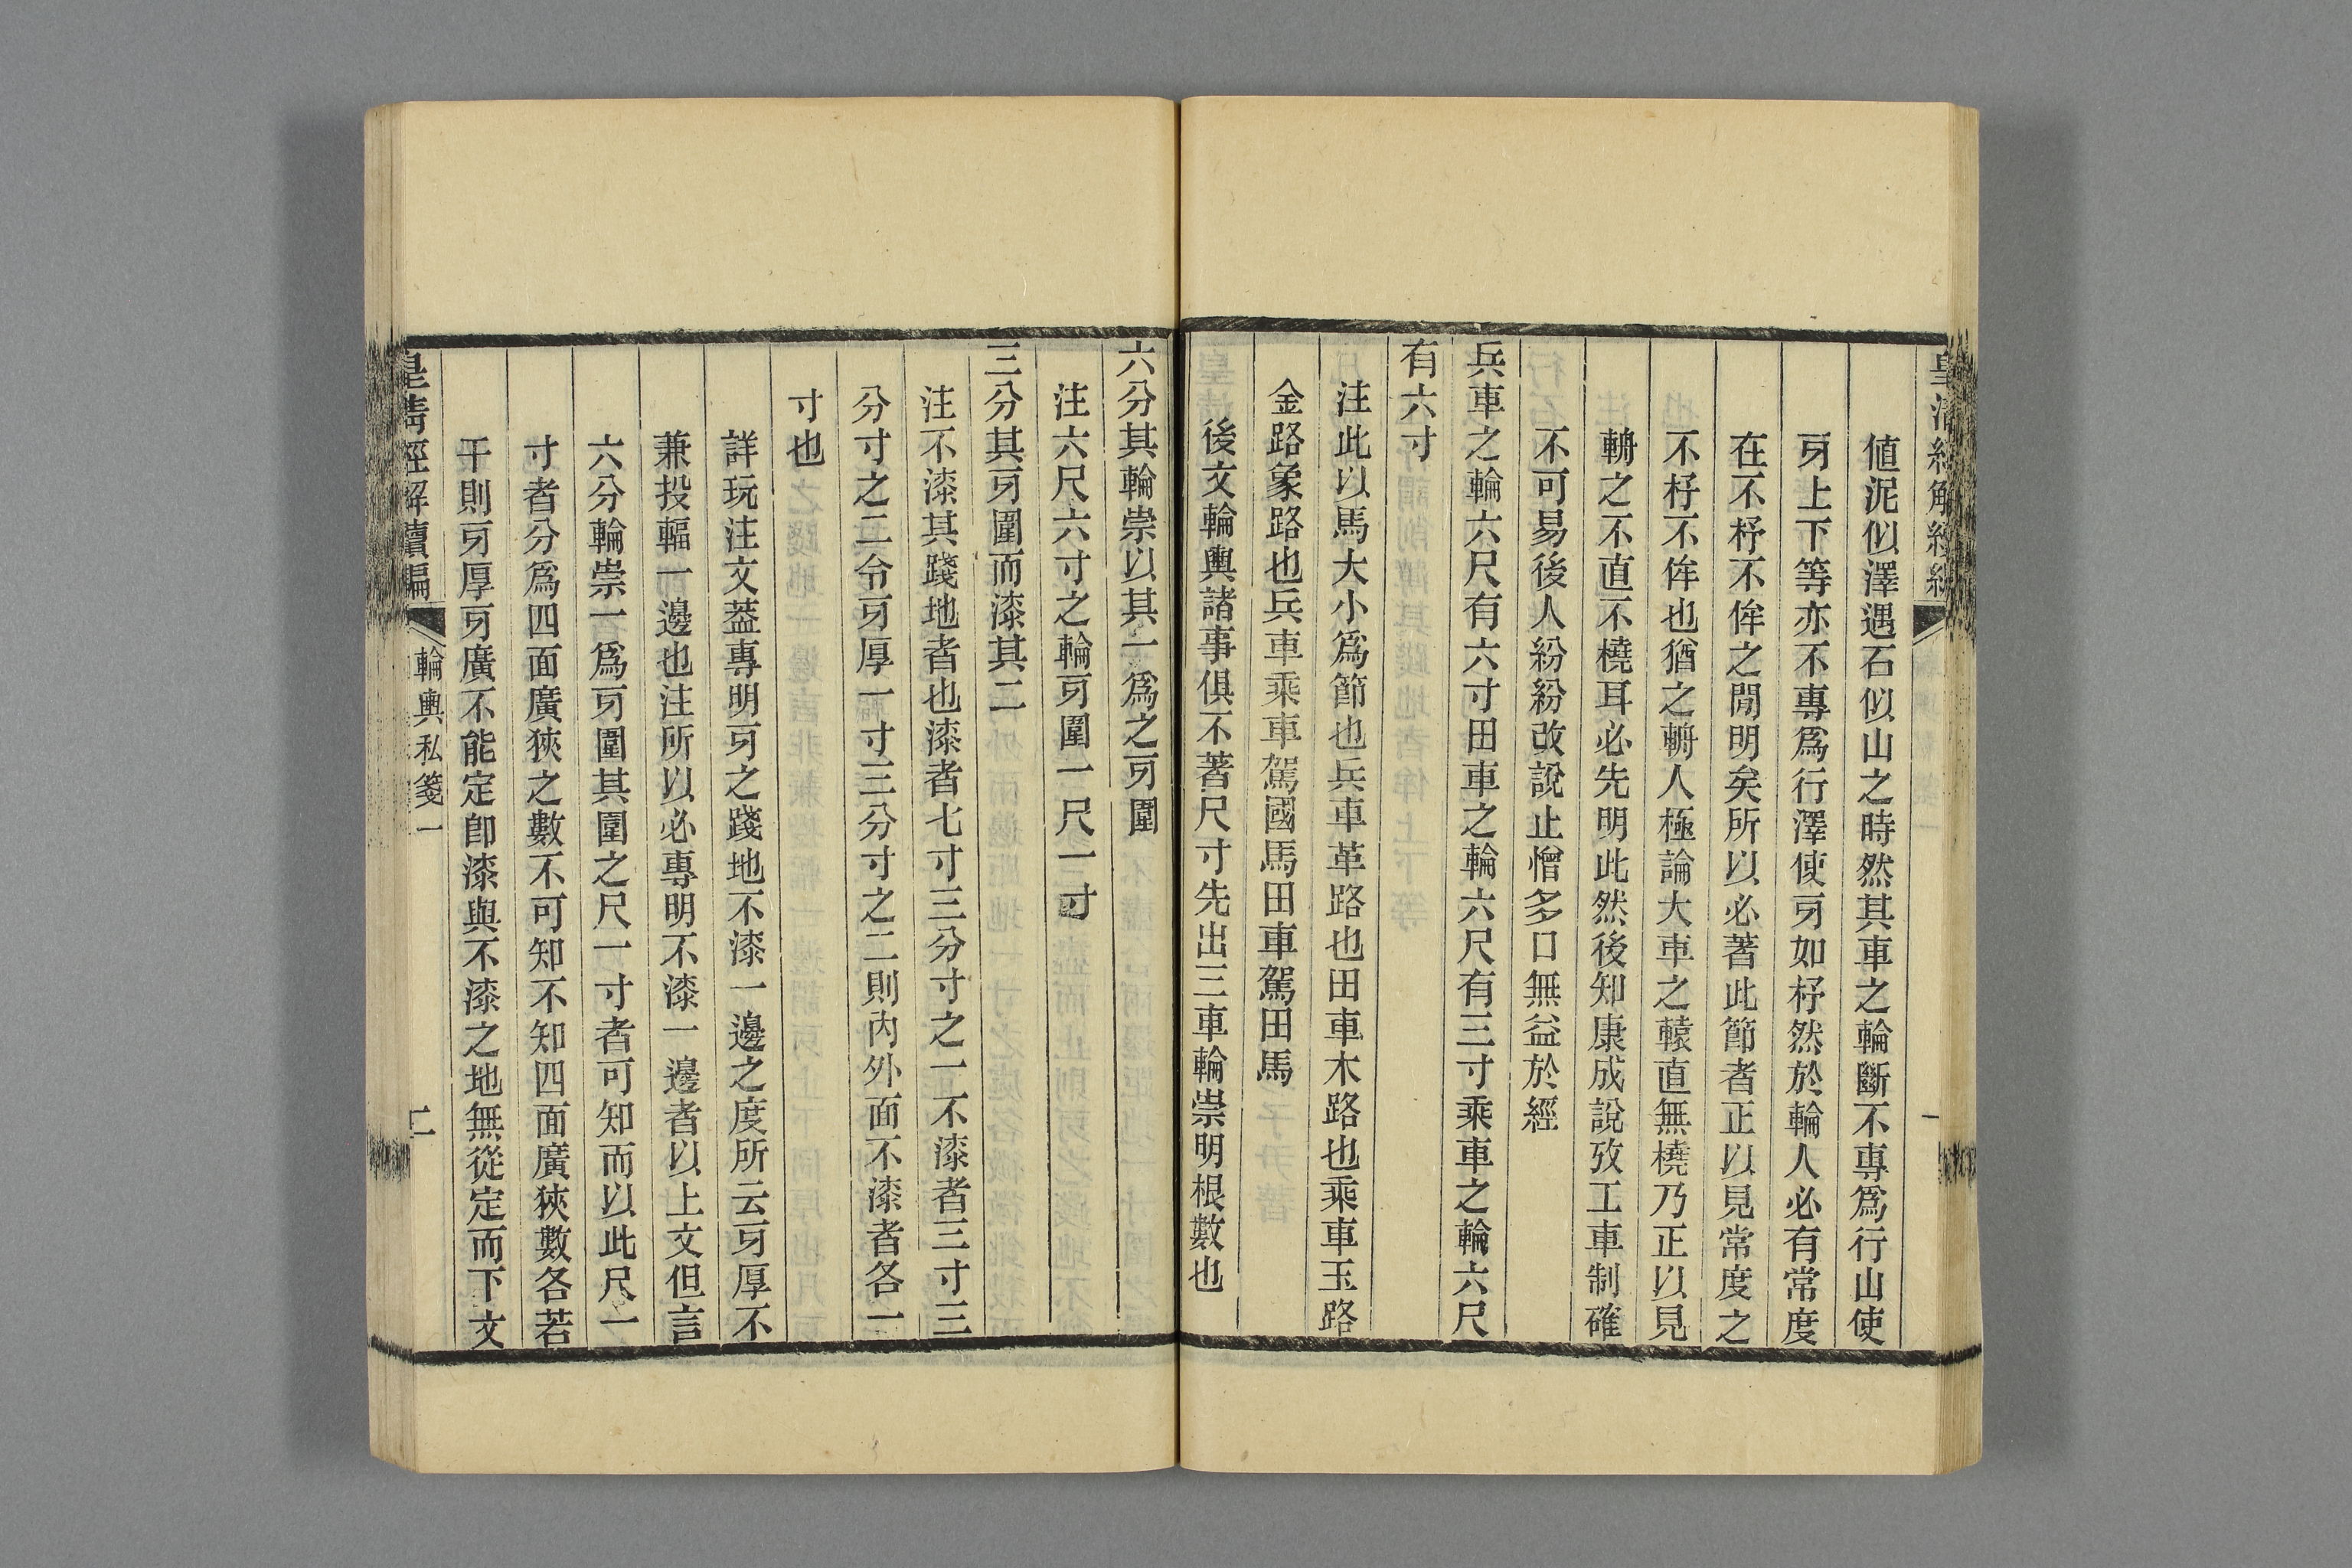 值泥似澤遇石似山之時然其車之輪斷不專爲行山使
牙上下等亦不專爲行澤使牙如杼然於輪人必有常度
在不杼不侔之閒明矣所以必著此節者正以見常度之
不杼不侔也猶之輈人極論大車之轅直無橈乃正以見
輈之不直不橈耳必先明此然後知康成說攷工車制確
不可易後人紛紛改說止憎多口無益於經
兵車之輪六尺有六寸田車之輪六尺有三寸乘車之輪六尺
有六寸
注此以馬大小爲節也兵車革路也田車木路也乘車玉路
金路象路也兵車乘車駕國馬田車駕田馬
後文輪輿諸事俱不著尺寸先出三車輪崇明根數也
六分其輪崇以其一爲之牙圍
注六尺六寸之輪牙圍一尺一寸
三分其牙圍而漆其二
注不漆其踐地者也漆者七寸三分寸之一不漆者三寸三
分寸之二令牙厚一寸三分寸之二則內外面不漆者各一
寸也
詳玩注文葢專明牙之踐地不漆一邊之度所云牙厚不
兼投輻一邊也注所以必專明不漆一邊者以上文但言
六分輪崇一爲牙圍其圍之尺一寸者可知而以此尺一
寸者分爲四面廣狹之數不可知不知四面廣狹數各若
干則牙厚牙廣不能定卽漆與不漆之地無從定而下文
皇清經解續編
輪輿私箋一
二